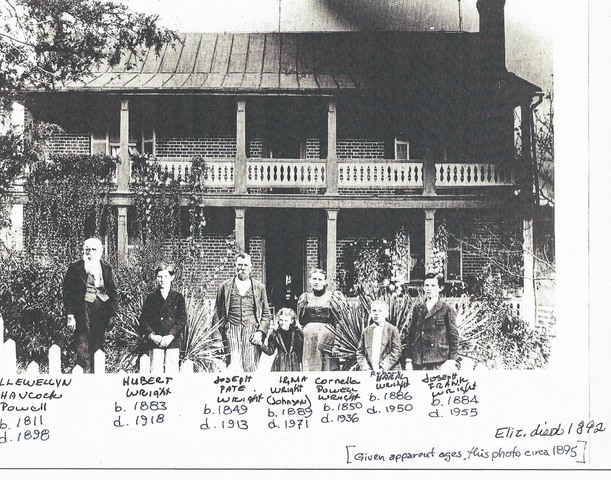 LLEWELLYN
HAYCOCK
Powell
b. 1811
d. 1898
HUBERT
WRIGHT
b. 1883
d. 1918
JOSEPH
PATE
WRIGHT
b. 1849
d. 1913
IRMA
WRIGHT
(Johnson)
b. 1889
d. 1971
Cornelia
POWELL
WRIGHT
b. 1850
d. 1936
WRIGHT
b. 1886
d. 1950
JOSEPH
FRANK
WRIGHT
b. 1884
d. 1955
Eliz. died 1892
[Given apparent ages, this photo circa 1895]